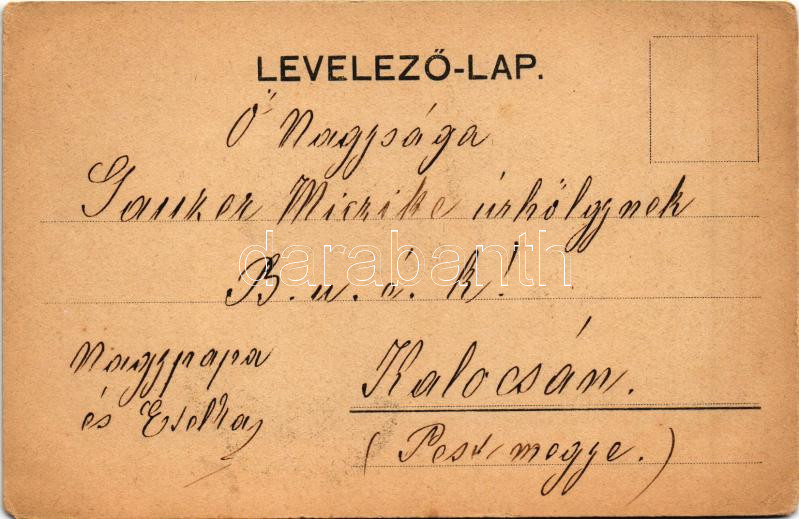 LEVELEZŐ-LAP.
Ő Nagysága
Gauzer Miczike úrhölgynek
B. u. é. k!
Nagypapa
és Etelka
Kalocsán.
(Pest megye.)
darabanth